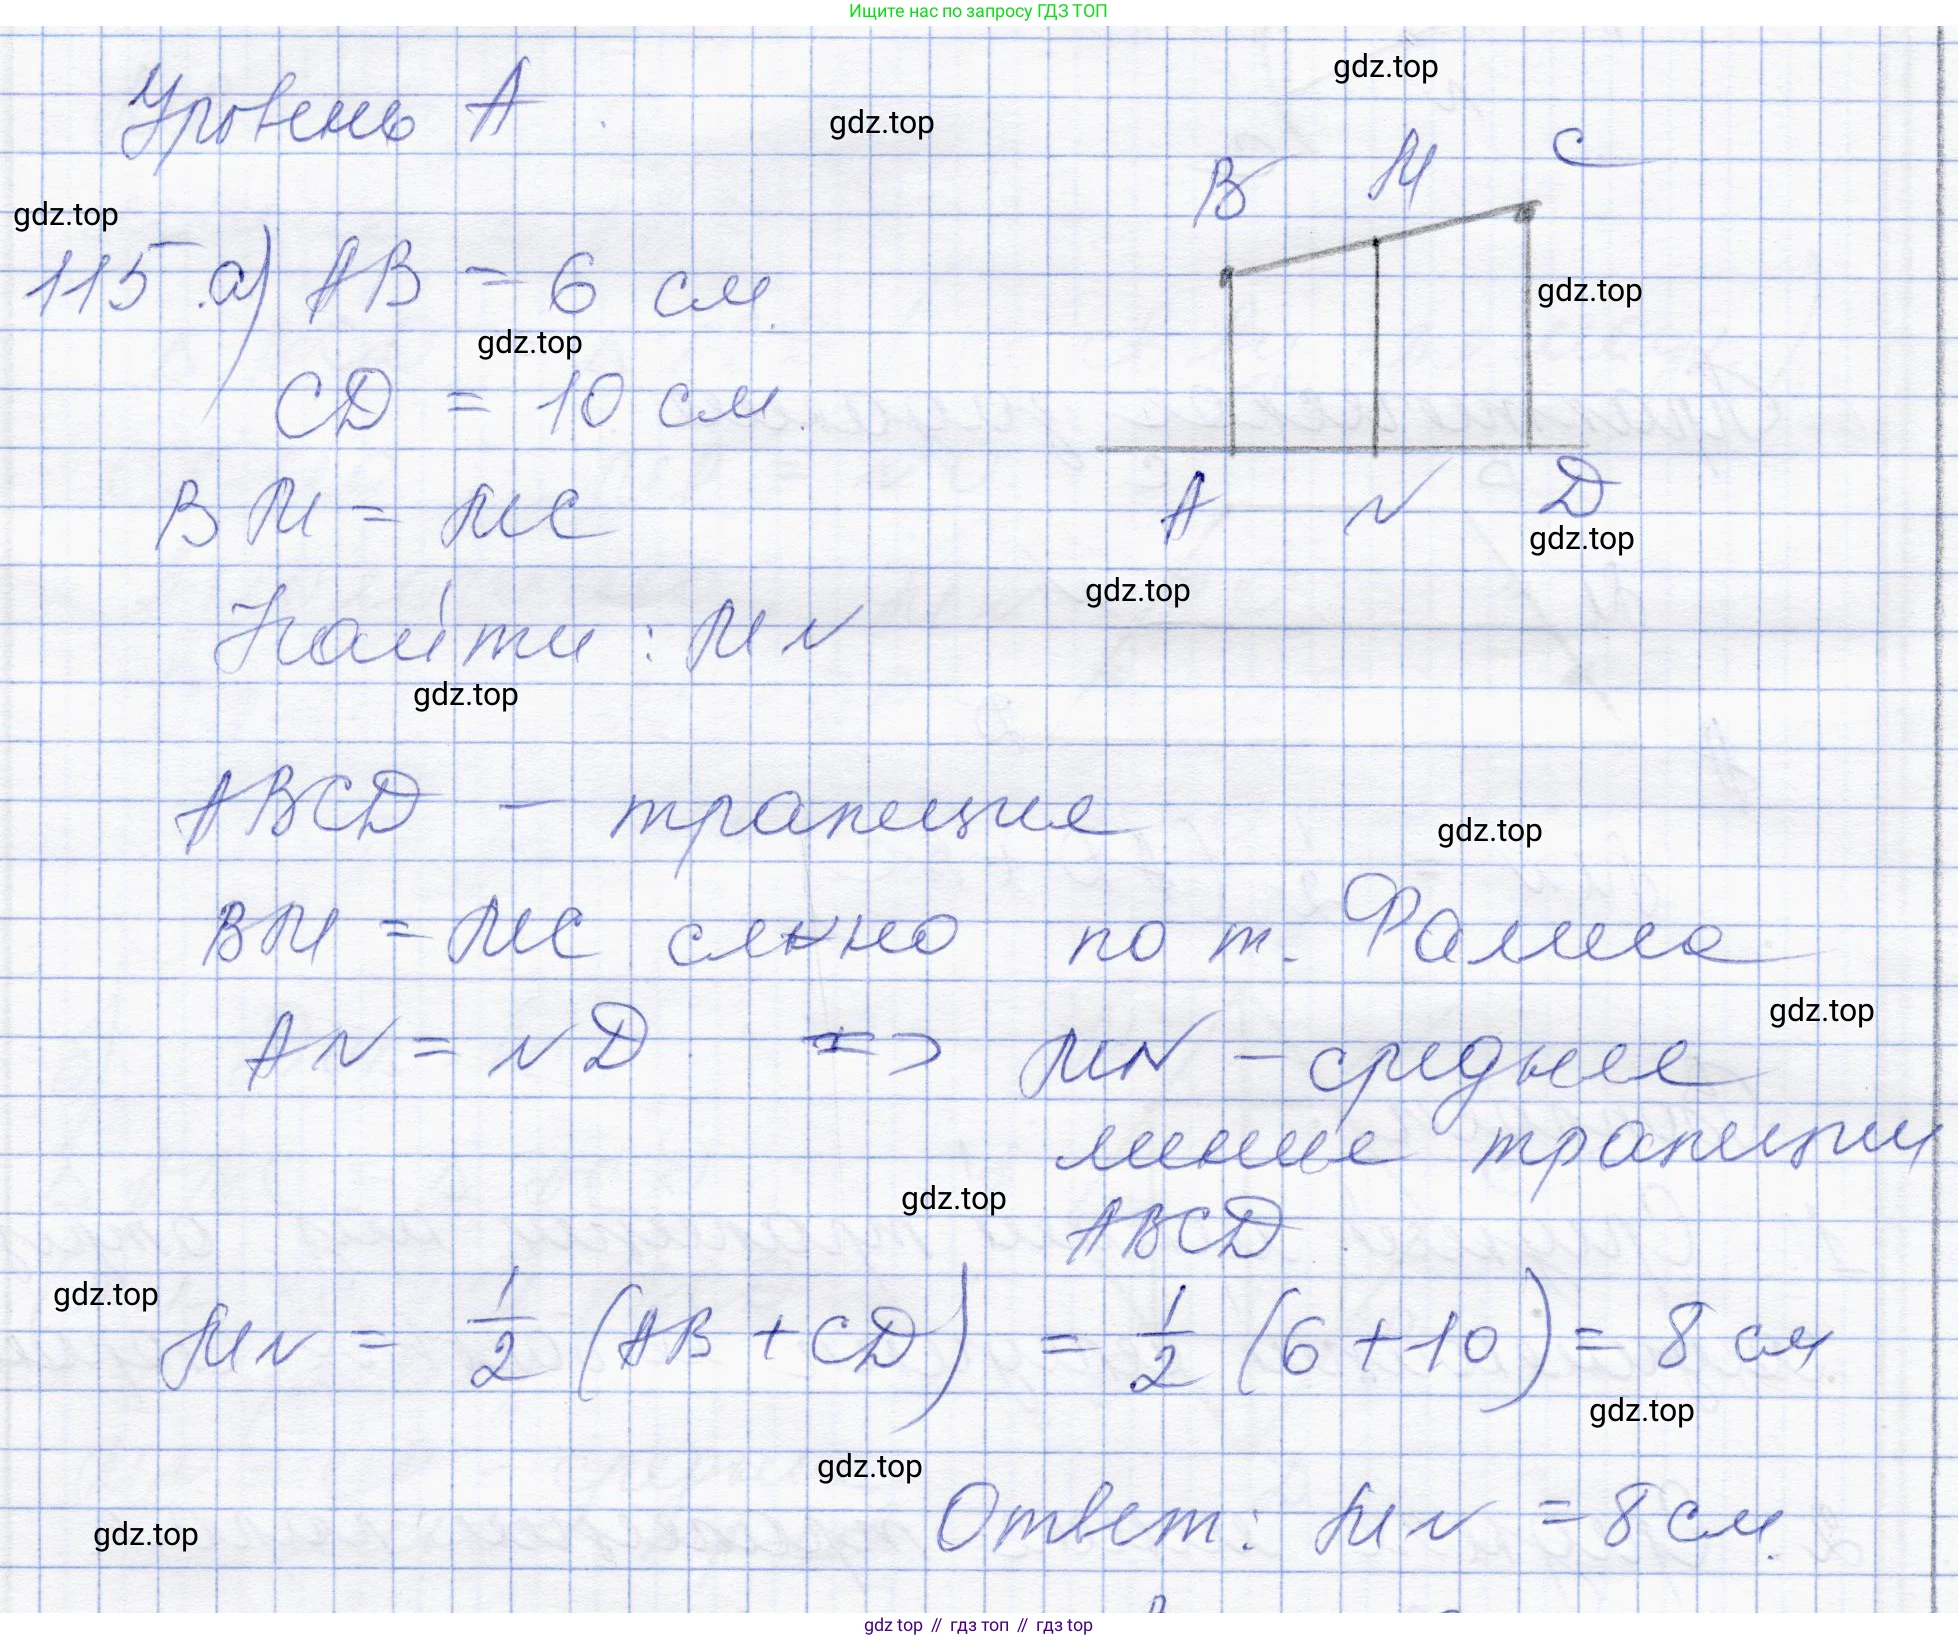 Ищите нас по запросу ГДЗ ТОП
gdz.top
Уровень А
gdz.top
В М С
gdz.top
115.а) АВ = 6 см.
gdz.top
gdz.top
CD = 10 см.
ВМ = МС
А N D
gdz.top
gdz.top
Найти: MN
gdz.top
ABCD - трапеция
gdz.top
ВМ = МС по т. Фалеса
AN = ND => MN - средняя
gdz.top
линия трапеции
gdz.top
ABCD
gdz.top
MN = 1/2 (AB + CD) = 1/2 (6 + 10) = 8 см
gdz.top
gdz.top
Ответ: MN = 8 см.
gdz.top
gdz top // гдз топ // гдз top